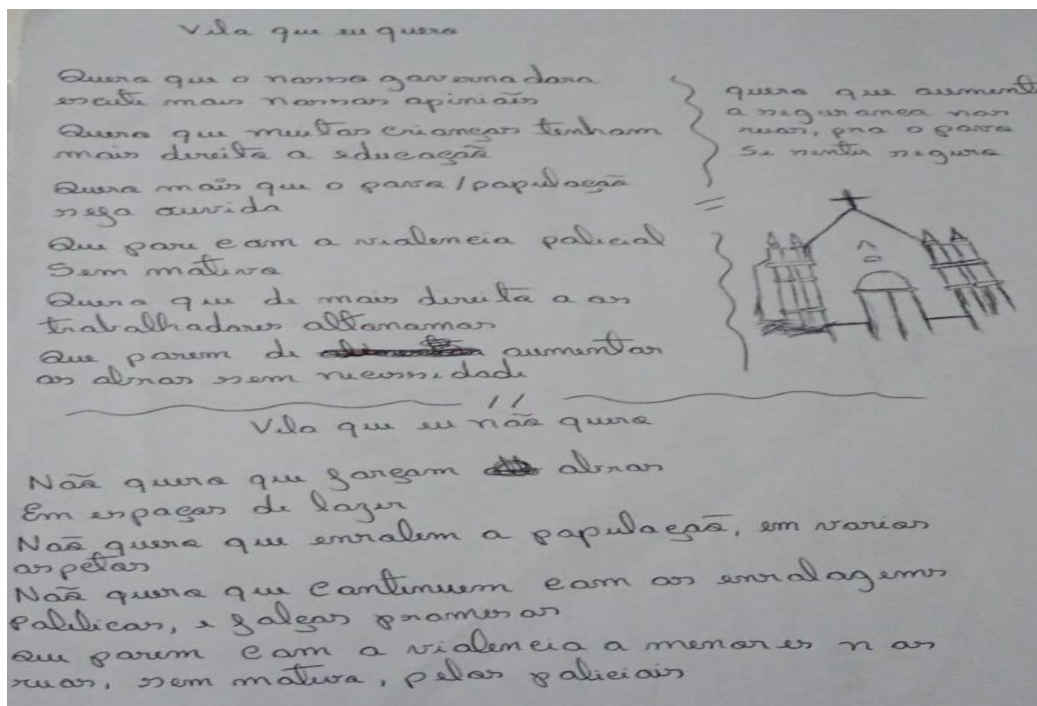 Vila que eu quero
Quero que o nosso governadora
escute mais nossas opiniais
Quero que muitas crianças tenham
mais direito a educação
Quero mais que o povo/população
seja ouvida
Que pare com a violencia policial
Sem motivo
Quero que de mais direito a os
trabalhadores altonamos
Que parem de aumentar
as obras sem necessidade
quero que aument
a seguranca nas
ruas, pra o povo
se sentir seguro
Vila que eu não quero
Não quero que façam obras
Em espaços de lazer
Não quero que enrolem a população, em varios
aspetos
Não quero que continuem com as enrolagems
Politicas, e falças promesas
Que parem com a violencia a menores n as
ruas, sem motivo, pelos policiais